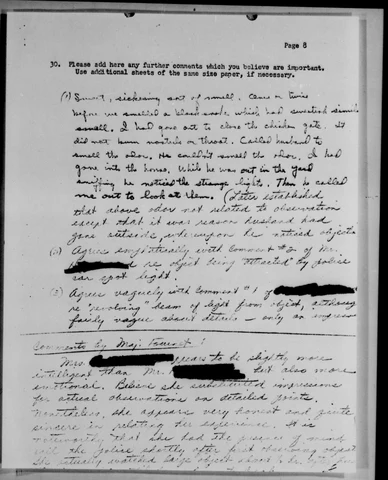 Page 8
30. Please add here any further comments which you believe are important.
Use additional sheets of the same size paper, if necessary.
(1) Sweet, sickening sort of smell. Once or twice
before we smelled a black snake, which had sweetish similar
smell. I had gone out to close the chicken gate. It
did not burn nostrils or throat. Called husband to
smell the odor. He couldn't smell the odor. I had
gone into the house. While he was out in the yard
sniffing he noticed the strange lights. Then he called
me out to look at them. (Later established
that above odor not related to observation
except that it was reason husband had
gone outside whereupon he noticed objects
(2) Agrees emphatically with Comment #2 of Mr.
re object being attracted by police
car spot light.
(3) Agrees vaguely with Comment #1 of
re "revolving" beam of light from object, although
fairly vague about details - only an impression
Comments by Maj. :
Mrs. appears to be slightly more
intelligent than Mr. but also more
emotional. Believe she substituted impressions
for actual observations on detailed points.
Nonetheless, she appears very honest and quite
sincere in relating her experience. It is
noteworthy that she had the presence of mind
call the police shortly after first observing object
She actually watched large object about 1 hr.